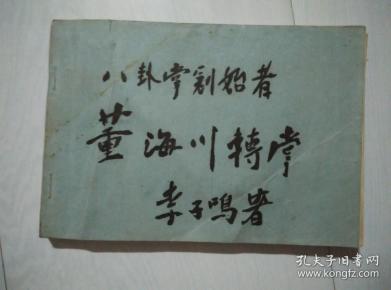 八卦掌创始者
董海川转掌
李子鸣著
孔夫子旧书网
www.kongfz.com